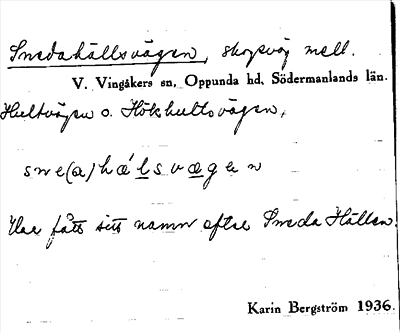 Snedahällsvägen, skogsväg mell.
V. Vingåkers sn, Oppunda hd, Södermanlands län.
Hultvägen o. Hökhultsvägen,
sne(a)hälsvægen
Har fått sitt namn efter Sneda Hällen.
Karin Bergström 1936.